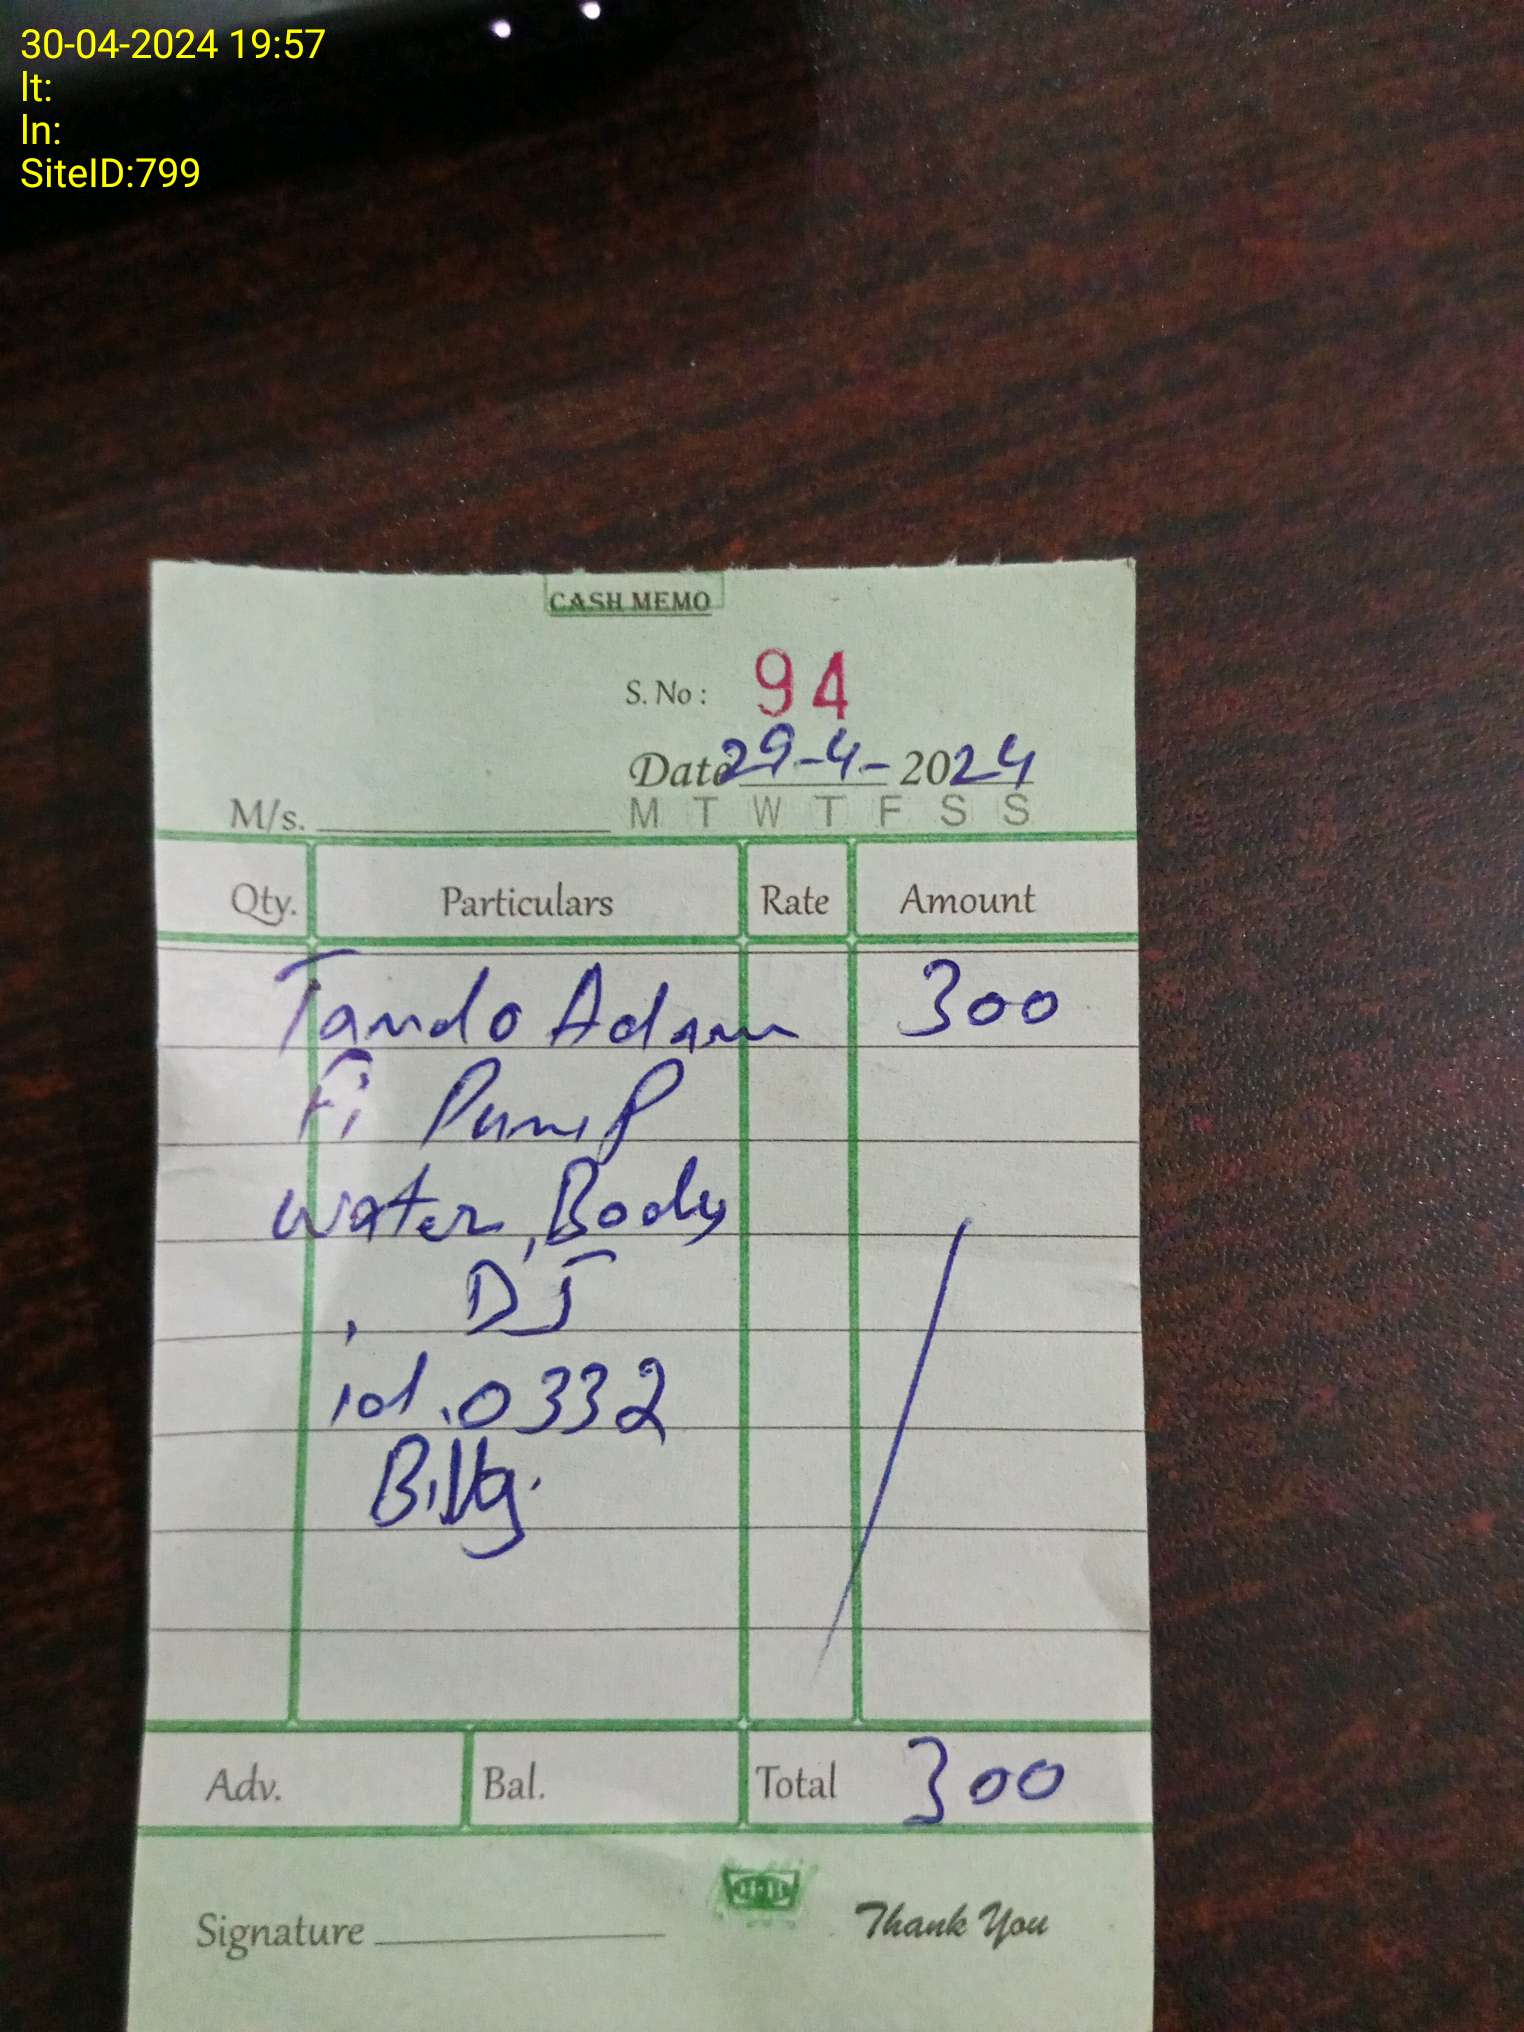 30-04-2024 19:57
lt:
ln:
SiteID:799
CASH MEMO
S. No : 94
Date 29-4-2024
M/s. M T W T F S S
Qty. Particulars Rate Amount
Tando Adam 300
Fi Pump
water, Body
, DJ
id.0332
Adv. Bal. Total 300
Signature Thank You